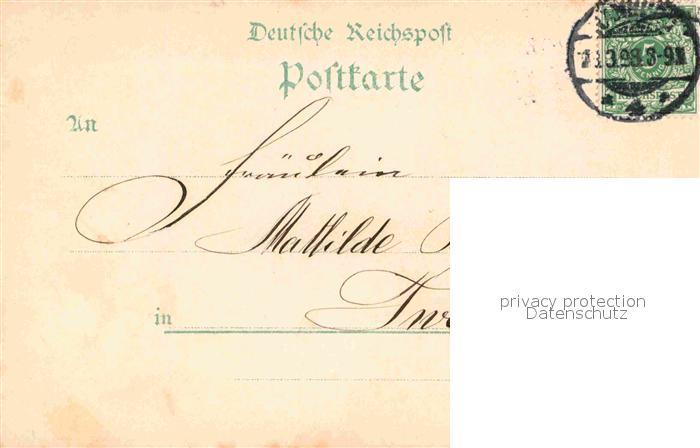 Deutsche Reichspost
Postkarte
An
Fräulein
Mathilde
in
privacy protection
Datenschutz